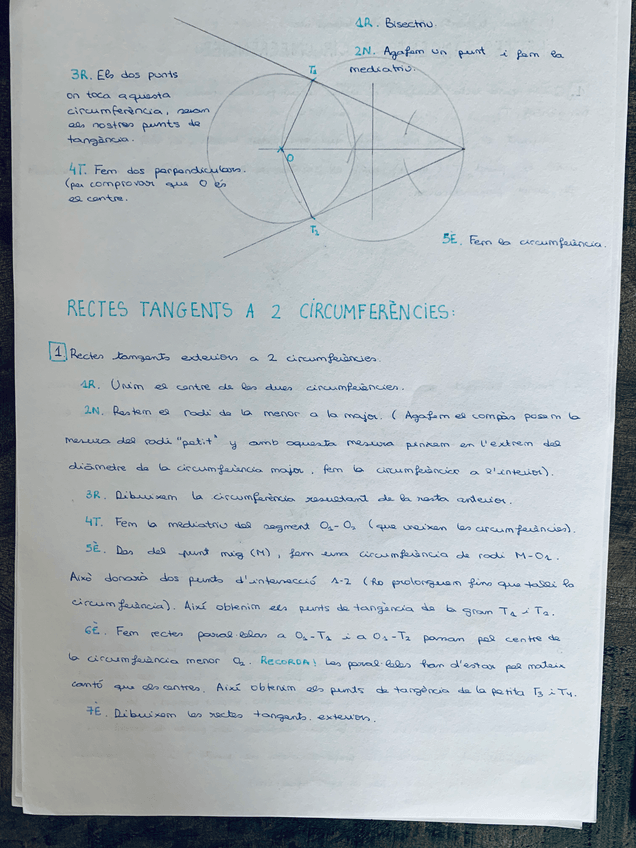 1R. Bisectriu.
2N. Agafem un punt i fem la
mediatriu.
3R. Els dos punts
on toca aquesta
circumferència, seran
els nostres punts de
tangència.
4T. Fem dos perpendiculars.
(per comprovar que O és
el centre.
T2
O
T1
5È. Fem la circumferència.
RECTES TANGENTS A 2 CIRCUMFERÈNCIES:
1 Rectes tangents exteriors a 2 circumferències.
1R. Unim el centre de les dues circumferències.
2N. Restem el radi de la menor a la major. (Agafem el compàs posem la
mesura del radi "petit" y amb aquesta mesura punxem en l'extrem del
diàmetre de la circumferència major, fem la circumferència a l'interior).
3R. Dibuixem la circumferència resultant de la resta anterior.
4T. Fem la mediatriu del segment O1-O2 (que uneixen les circumferències).
5È. Des del punt mig (M), fem una circumferència de radi M-O1.
Això donarà dos punts d'intersecció 1-2 (Ho prolonguem fins que talli la
circumferència). Així obtenim els punts de tangència de la gran T1 i T2.
6È. Fem rectes paral·leles a O1-T1 i a O1-T2 passan pel centre de
la circumferència menor O2. RECORDA! Les paral·leles han d'estar pel mateix
cantó que els centres. Així obtenim els punts de tangència de la petita T3 i T4.
7È. Dibuixem les rectes tangents exteriors.